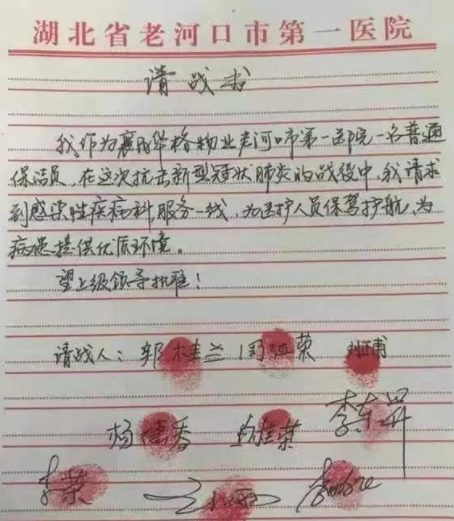 湖北省老河口市第一医院
请战书
我作为襄阳华格物业老河口市第一医院一名普通
保洁员，在这次抗击新型冠状肺炎的战役中，我请求
到感染性疾病科服务一线，为医护人员保驾护航，为
病患提供优质环境。
望上级领导批准！
请战人：郭桂兰 周 荣
杨 香 桂荣 李东升
李荣